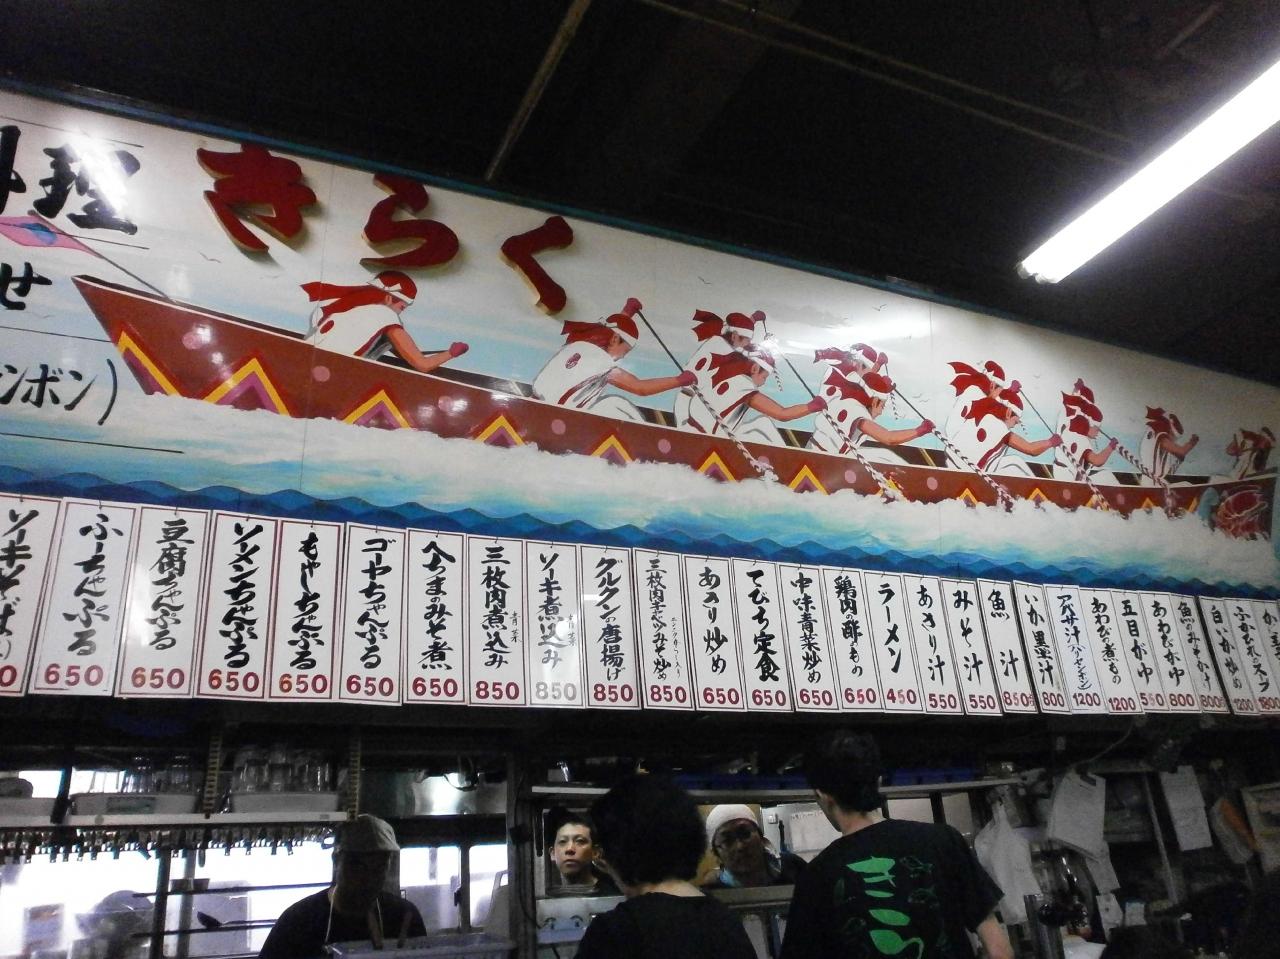 料理
きらく
せ
ンボン)
ソーキそば
ふーちゃんぷる
650
豆腐ちゃんぷる
650
ソーメンちゃんぷる
650
もやしちゃんぷる
650
ゴーヤちゃんぷる
650
へちまのみそ煮
650
三枚肉煮込み
青菜
850
ソーキ煮込み
青菜
850
グルクンの唐揚げ
850
850
あさり炒め
650
てびち定食
650
中味青菜炒め
650
鶏肉の酢のもの
650
ラーメン
450
あさり汁
550
みそ汁
550
魚汁
850
いか黒汁
800
アバサ汁(ハリセンボン)
1200
あわびの煮もの
1200
五目がゆ
550
あわびがゆ
800
魚のみそかけ
800
白いか炒め
1200
ふかひれのスープ
1800
きらく